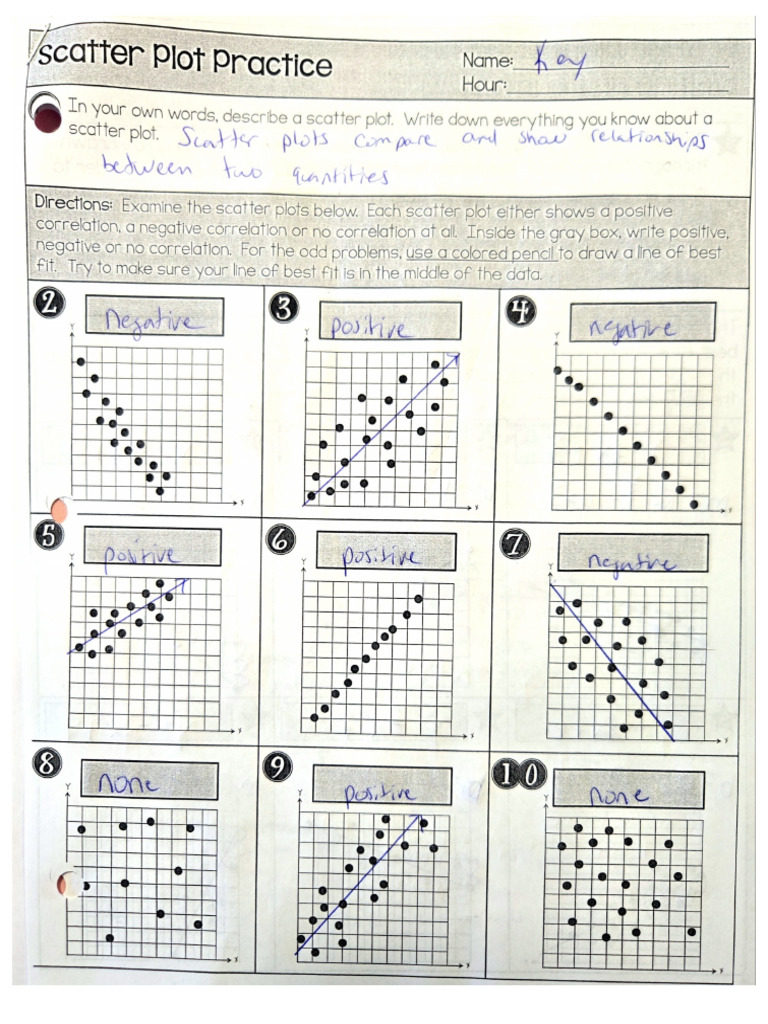 Scatter Plot Practice
Name: Kay
Hour:
In your own words, describe a scatter plot. Write down everything you know about a
scatter plot. Scatter plots compare and show relationships
between two quantities
Directions: Examine the scatter plots below. Each scatter plot either shows a positive
correlation, a negative correlation or no correlation at all. Inside the gray box, write positive,
negative or no correlation. For the odd problems, use a colored pencil to draw a line of best
fit. Try to make sure your line of best fit is in the middle of the data.
2 Negative
3 positive
4 negative
Y Y Y
X X X
5 positive
6 positive
7 negative
Y Y Y
X X X
8 none
9 positive
10 none
Y Y Y
X X X